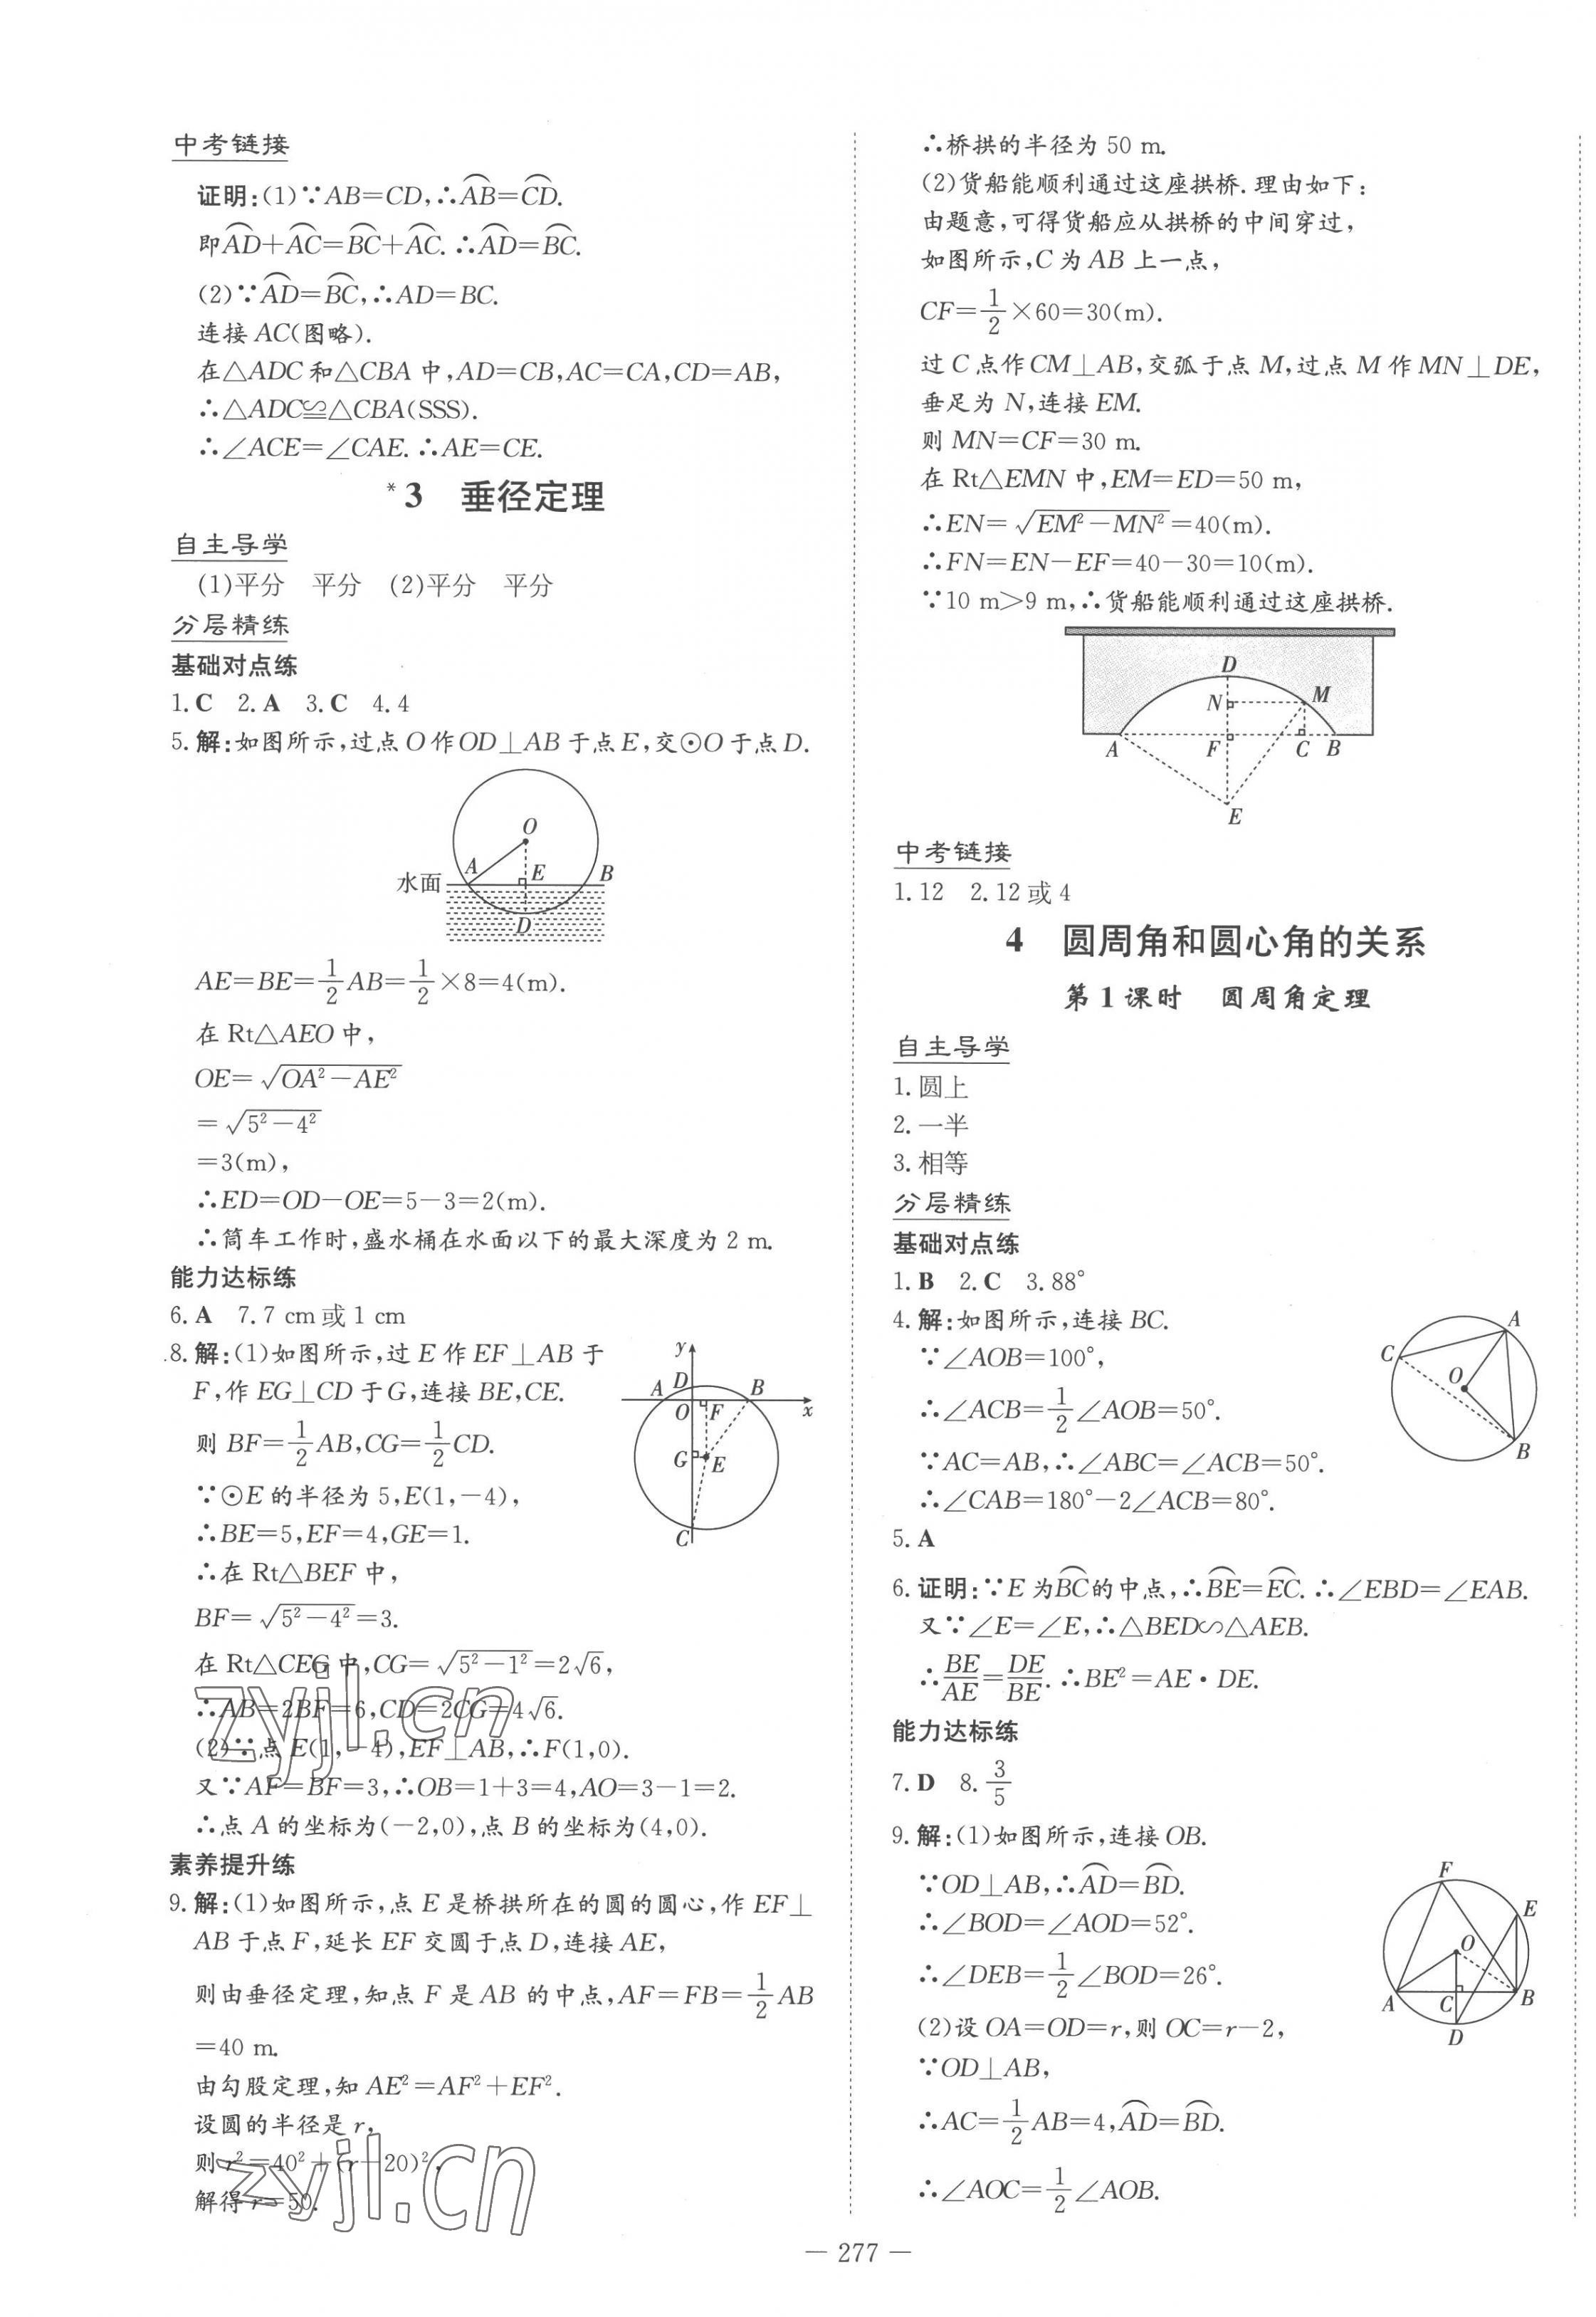 中考链接
证明:(1)∵AB=CD,∴⌒AB=⌒CD.
即⌒AD+⌒AC=⌒BC+⌒AC.∴⌒AD=⌒BC.
(2)∵⌒AD=⌒BC,∴AD=BC.
连接 AC(图略).
在△ADC 和△CBA 中,AD=CB,AC=CA,CD=AB,
∴△ADC≌△CBA(SSS).
∴∠ACE=∠CAE.∴AE=CE.
*3 垂径定理
自主导学
(1)平分 平分 (2)平分 平分
分层精练
基础对点练
1.C 2.A 3.C 4.4
5.解:如图所示,过点 O 作 OD⊥AB 于点 E,交⊙O 于点 D.
O
A E B
水面
D
AE=BE=1/2AB=1/2×8=4(m).
在 Rt△AEO 中,
OE=√(OA²−AE²)
=√(5²−4²)
=3(m),
∴ED=OD−OE=5−3=2(m).
∴筒车工作时,盛水桶在水面以下的最大深度为 2 m.
能力达标练
6.A 7.7 cm或1 cm
8.解:(1)如图所示,过 E 作 EF⊥AB 于
F,作 EG⊥CD 于 G,连接 BE,CE.
则 BF=1/2AB,CG=1/2CD.
∵⊙E 的半径为 5,E(1,−4),
∴BE=5,EF=4,GE=1.
∴在 Rt△BEF 中,
BF=√(5²−4²)=3.
在 Rt△CEG 中,CG=√(5²−1²)=2√6,
∴AB=2BF=6,CD=2CG=4√6.
(2)∵点 E(1,−4),EF⊥AB,∴F(1,0).
又∵AF=BF=3,∴OB=1+3=4,AO=3−1=2.
∴点 A 的坐标为(−2,0),点 B 的坐标为(4,0).
y
A D B
O F x
G E
C
素养提升练
9.解:(1)如图所示,点 E 是桥拱所在的圆的圆心,作 EF⊥
AB 于点 F,延长 EF 交圆于点 D,连接 AE,
则由垂径定理,知点 F 是 AB 的中点,AF=FB=1/2AB
=40 m.
由勾股定理,知 AE²=AF²+EF².
设圆的半径是 r,
则 r²=40²+(r−20)²,
解得 r=50.
zyjl.cn
zyjl.cn
∴桥拱的半径为 50 m.
(2)货船能顺利通过这座拱桥.理由如下:
由题意,可得货船应从拱桥的中间穿过,
如图所示,C 为 AB 上一点,
CF=1/2×60=30(m).
过 C 点作 CM⊥AB,交弧于点 M,过点 M 作 MN⊥DE,
垂足为 N,连接 EM.
则 MN=CF=30 m.
在 Rt△EMN 中,EM=ED=50 m,
∴EN=√(EM²−MN²)=40(m).
∴FN=EN−EF=40−30=10(m).
∵10 m>9 m,∴货船能顺利通过这座拱桥.
D
N M
A F C B
E
中考链接
1.12 2.12或4
4 圆周角和圆心角的关系
第1课时 圆周角定理
自主导学
1.圆上
2.一半
3.相等
分层精练
基础对点练
1.B 2.C 3.88°
4.解:如图所示,连接 BC.
∵∠AOB=100°,
∴∠ACB=1/2∠AOB=50°.
∵AC=AB,∴∠ABC=∠ACB=50°.
∴∠CAB=180°−2∠ACB=80°.
A
C
O
B
5.A
6.证明:∵E 为⌒BC的中点,∴⌒BE=⌒EC.∴∠EBD=∠EAB.
又∵∠E=∠E,∴△BED∽△AEB.
∴BE/AE=DE/BE.∴BE²=AE·DE.
能力达标练
7.D 8.3/5
9.解:(1)如图所示,连接 OB.
∵OD⊥AB,∴⌒AD=⌒BD.
∴∠BOD=∠AOD=52°.
∴∠DEB=1/2∠BOD=26°.
(2)设 OA=OD=r,则 OC=r−2,
∵OD⊥AB,
∴AC=1/2AB=4,⌒AD=⌒BD.
∴∠AOC=1/2∠AOB.
F
E
O
A C B
D
— 277 —